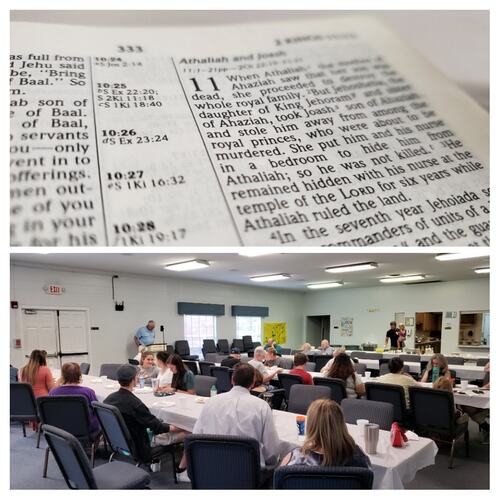 333
2 KINGS
was full from
d Jehu said
be, "Bring
Baal." So
m.
ab son of
e of Baal.
of Baal,
servants
you—only
ent in to
offerings.
men out-
e of you
t in your
for his
10:24
S Jm 2:14
10:25
S Ex 22:20;
S 2Ki 11:18;
S 1Ki 18:40
10:26
S Ex 23:24
10:27
S 1Ki 16:32
10:28
1Ki 19:17
Athaliah and Joash
11 When Athaliah the mother of
Ahaziah saw that her son was
dead, she proceeded to destroy the
whole royal family. But Jehosheba,
daughter of King Jehoram and
of Ahaziah, took Joash son of Ahaziah
and stole him away from among the
royal princes, who were about to be
murdered. She put him and his nurse
in a bedroom to hide him from
Athaliah; so he was not killed. He
remained hidden with his nurse at the
temple of the LORD for six years while
Athaliah ruled the land.
In the seventh year Jehoiada s
commanders of units of a
and the gua
EXIT